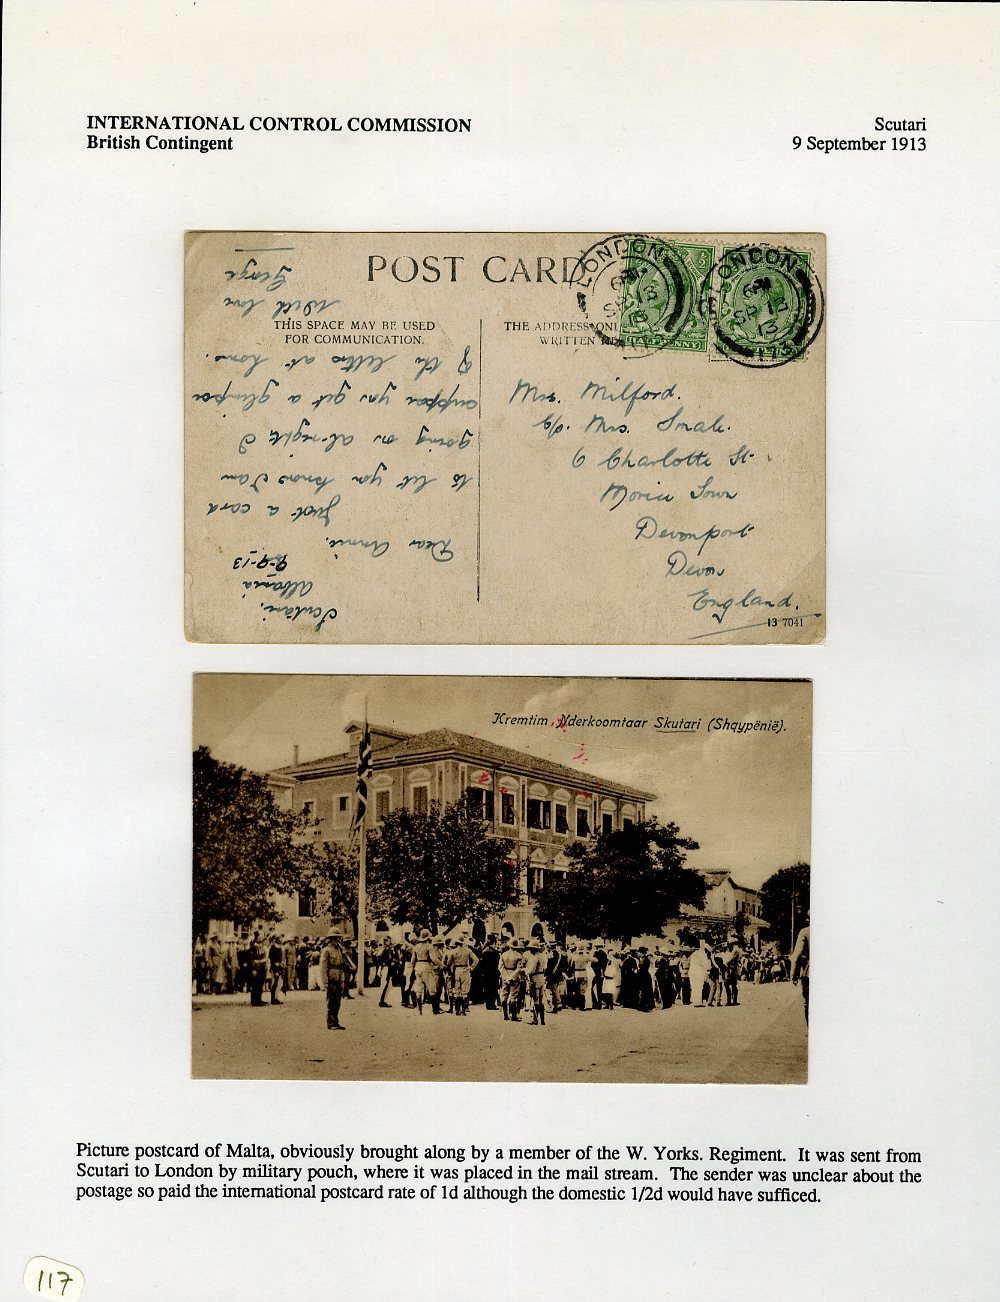 INTERNATIONAL CONTROL COMMISSION
British Contingent
Scutari
9 September 1913
POST CARD
THIS SPACE MAY BE USED
FOR COMMUNICATION.
THE ADDRESS ONL
WRITTEN HE
LONDON
6 PM
SP 13
13
LONDON
6 PM
SP 13
13
HALFPENNY
HALFPENNY
Scutari.
Albania
9-9-13
Dear Annie.
Just a card
to let you know I am
going on alright I
suppose you get a glimpse
of the letters at home.
With love
George
Mrs. Milford.
c/o. Mrs. Smale.
6 Charlotte St.
Morice Town
Devonport
Devon
England.
13 7041
Kremtim Nderkoomtaar Skutari (Shqypënië).
Picture postcard of Malta, obviously brought along by a member of the W. Yorks. Regiment. It was sent from
Scutari to London by military pouch, where it was placed in the mail stream. The sender was unclear about the
postage so paid the international postcard rate of 1d although the domestic 1/2d would have sufficed.
117